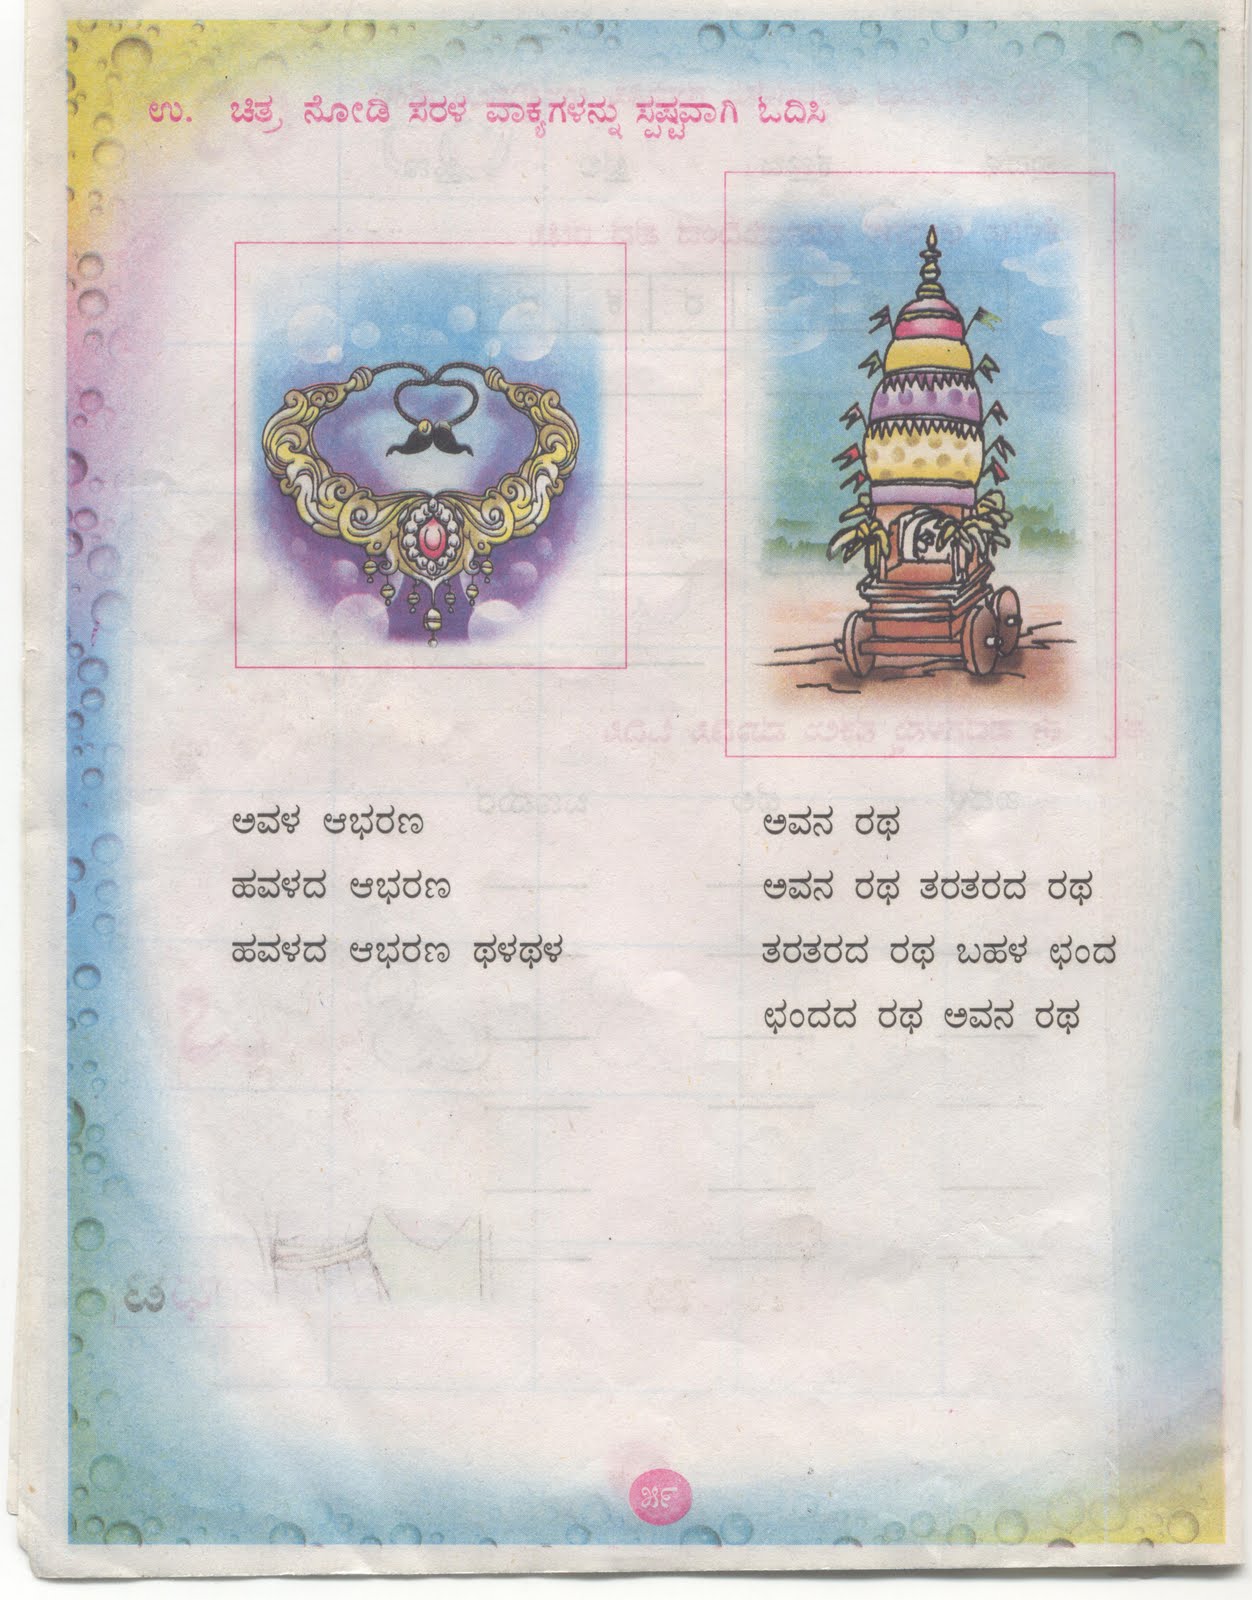 ಉ. ಚಿತ್ರ ನೋಡಿ ಸರಳ ವಾಕ್ಯಗಳನ್ನು ಸ್ಪಷ್ಟವಾಗಿ ಓದಿಸಿ
ಅವಳ ಆಭರಣ
ಹವಳದ ಆಭರಣ
ಹವಳದ ಆಭರಣ ಥಳಥಳ
ಅವನ ರಥ
ಅವನ ರಥ ತರತರದ ರಥ
ತರತರದ ರಥ ಬಹಳ ಛಂದ
ಛಂದದ ರಥ ಅವನ ರಥ
೫೯